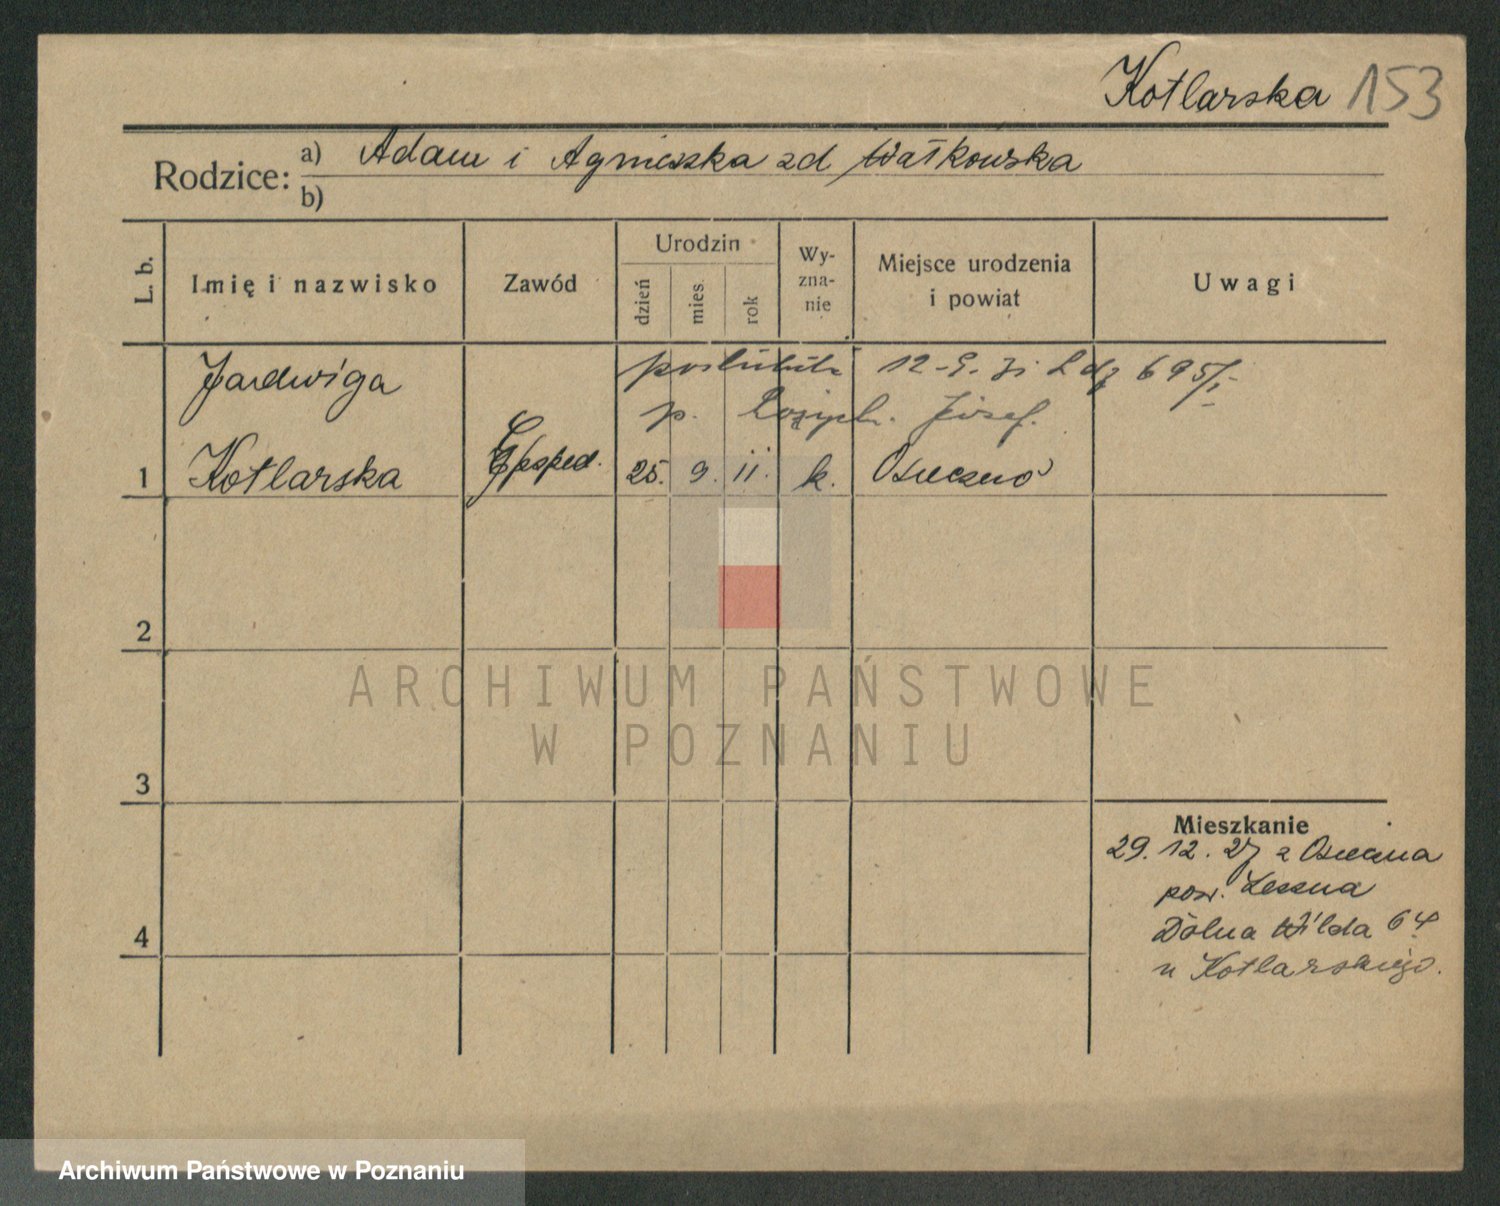 Kotlarska 153
Rodzice:
a) Adam i Agnieszka zd Wałkowska
b)
L. b.
Imię i nazwisko
Zawód
Urodzin
dzień
mies.
rok
Wy-
zna-
nie
Miejsce urodzenia
i powiat
Uwagi
Jadwiga
poślubiła 12-9. 31 L dz 695/I
p. Józef.
1 Kotlarska
25. 9. 11. k. Osieczno
2
ARCHIWUM PAŃSTWOWE
W POZNANIU
3
Mieszkanie
29. 12. 27 z Osieczna
pow. Leszna
4
Dolna Wilda 64
u Kotlarskiego.
Archiwum Państwowe w Poznaniu